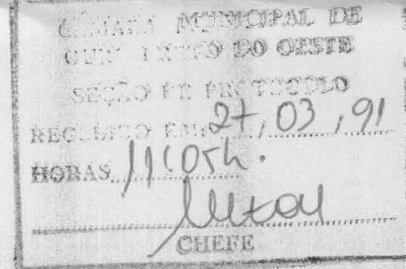 CÂMARA MUNICIPAL DE
OURO PRETO DO OESTE
SEÇÃO DE PROTOCOLO
RECEBIDO EM 27, 03, 91
HORAS 11:05h.
CHEFE